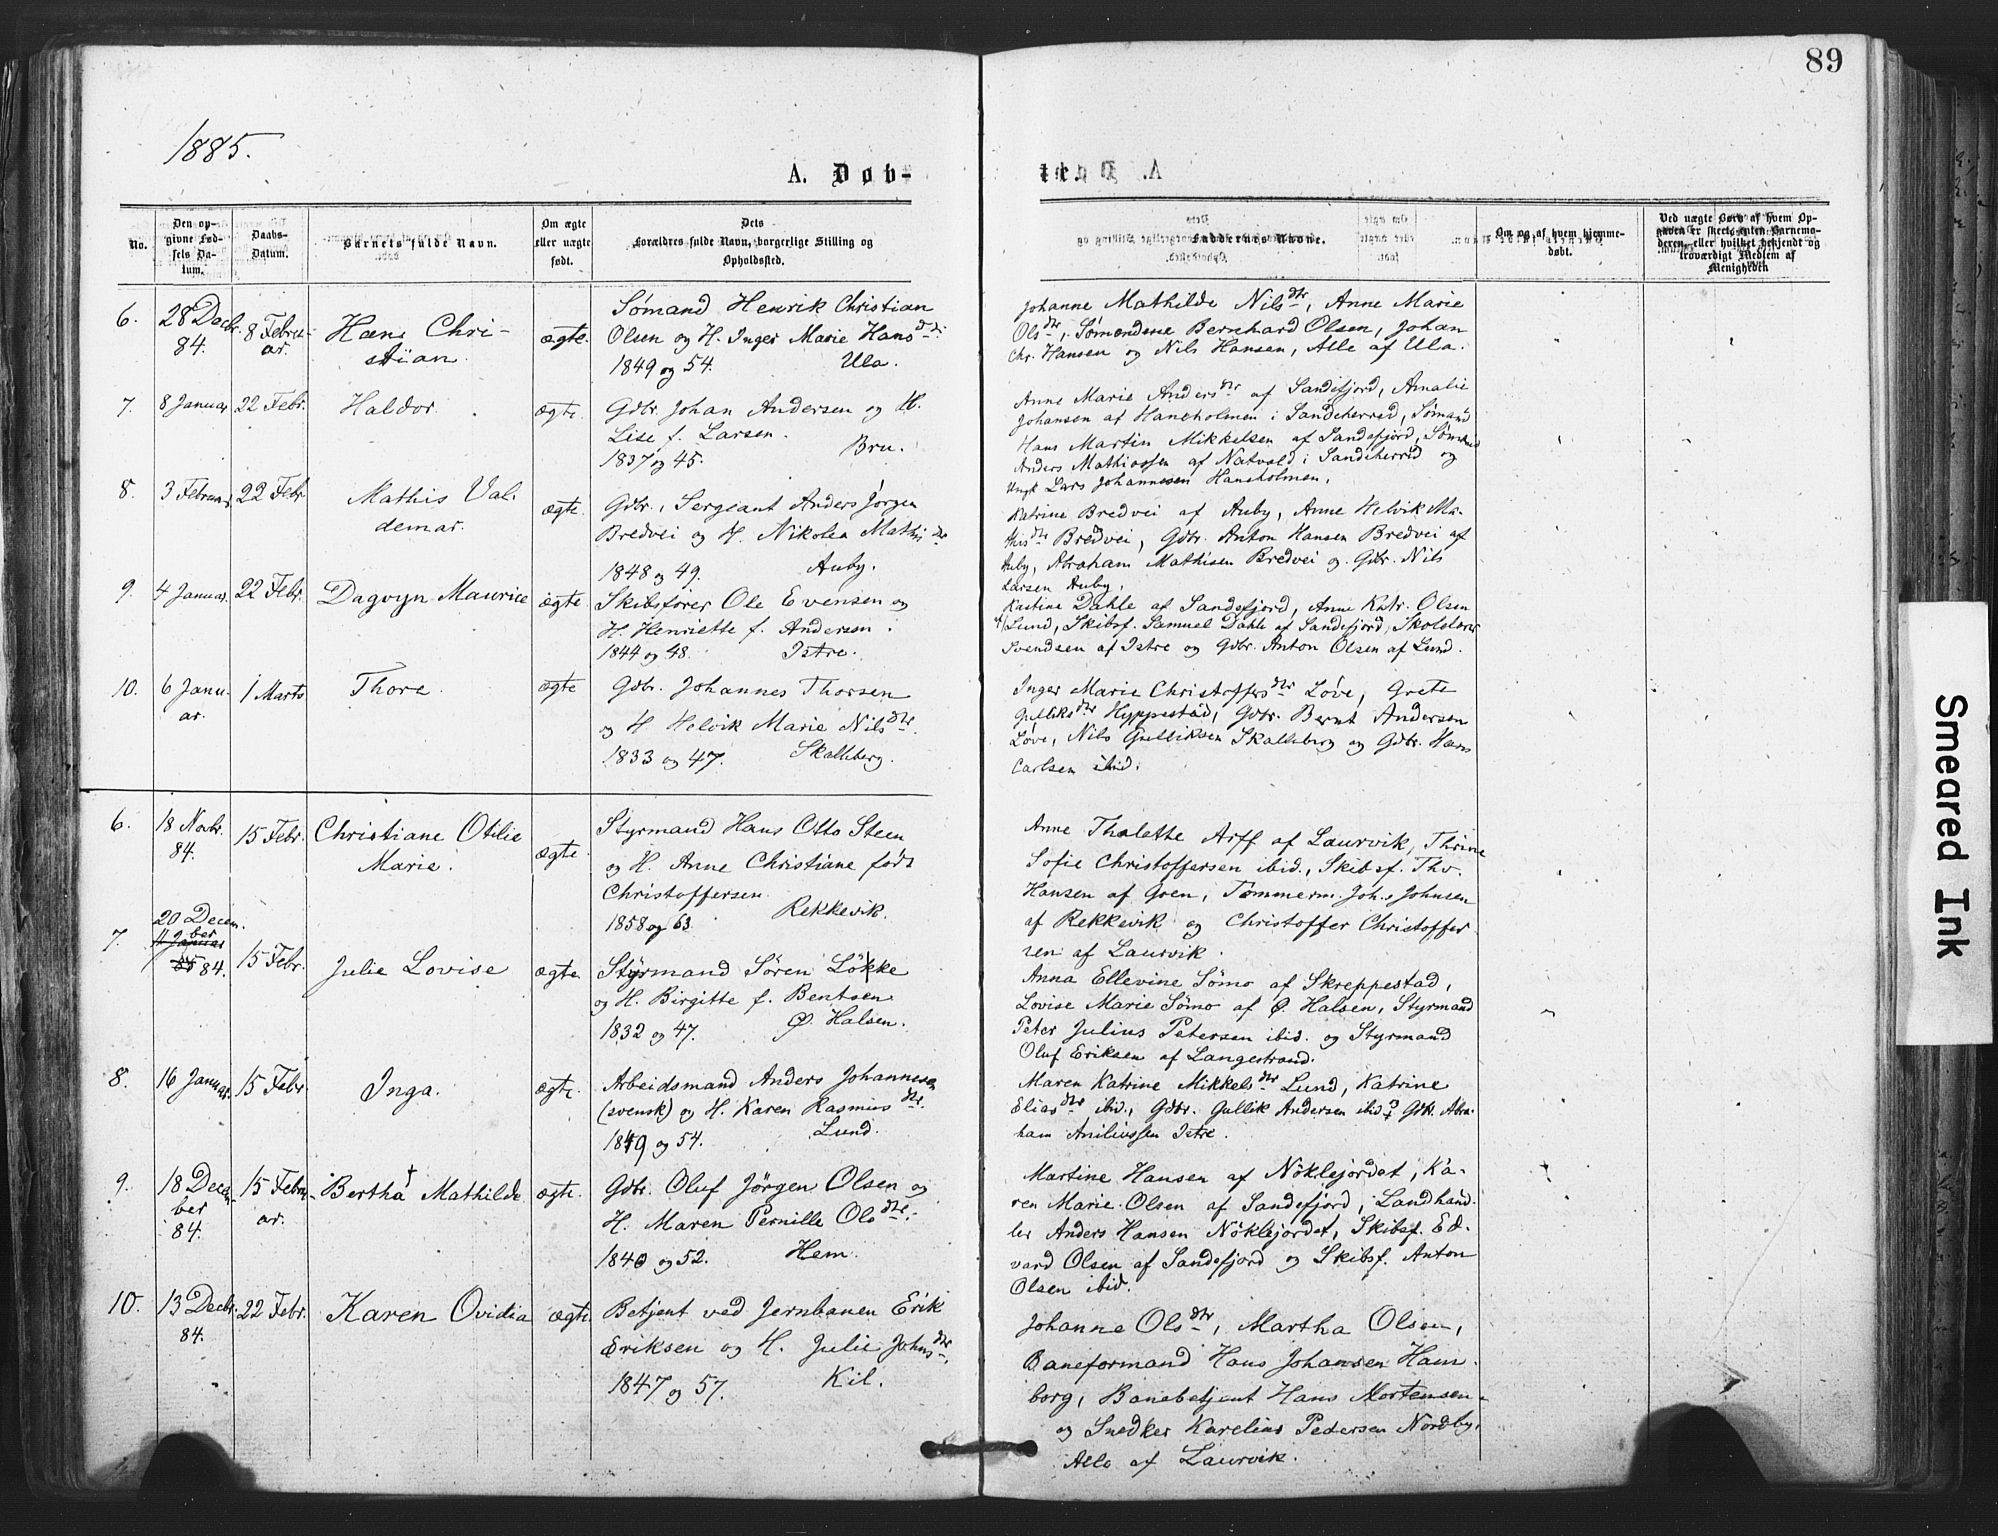 89
1885.
A. Døb-
te.
No.
Den op-
givne Fød-
sels Da-
tum.
Daabs-
Datum.
Barnets fulde Navn.
Om ægte
eller uægte
født.
Dets
Forældres fulde Navn, borgerlige Stilling og
Opholdssted.
Faddernes Navne.
Om og af hvem hjemme-
døbt.
Ved uægte Børn af hvem Op-
gaven er skeet, enten Barnemo-
deren, eller hvilket bekjendt og
troværdigt Medlem af
Menigheden
6.
28 Decbr.
84.
8 Febru-
ar.
Hans Chri-
stian
ægte.
Sømand Henrik Christian
Olsen og H. Inger Marie Hansdtr.
1849 og 54. Ula.
Johanne Mathilde Nilsdtr, Anne Marie
Olsdtr, Sømændene Bernhard Olsen, Johan
Chr. Hansen og Nils Hansen, Alle af Ula.
7.
8 Januar.
22 Febr.
Haldor.
ægte.
Gdbr. Johan Andersen og H.
Lise f. Larsen.
1837 og 45. Bru.
Anne Marie Andersdtr af Sandefjord, Amalie
Johansen af Haneholmen i Sandeherred, Sømand
Hans Martin Mikkelsen af Sandefjord, Sømand
Anders Mathiassen af Natvald i Sandeherred og
Ungk Lars Johannesen Haneholmen.
8.
3 Februar.
22 Febr
Mathis Val-
demar.
ægte.
Gdbr., Sergeant Anders Jørgen
Bredvei og H. Nikolea Mathisdtr
1848 og 49. Auby.
Katrine Bredvei af Auby, Anne Helvik Ma-
thisdtr Bredvei, Gdbr. Anton Hansen Bredvei af
Auby, Abraham Mathisen Bredvei og Gdbr. Nils
Larsen Auby.
9.
4 Januar.
22 Febr.
Dagvyn Maurice
ægte
Skibsfører Ole Evensen og
H. Henriette f. Andersen.
1844 og 48. Istre.
Kastine Dahle af Sandefjord, Anne Katr. Olsen
af Lund, Skibsf. Samuel Dahle af Sandefjord, Skolelærer
Svendsen af Istre og Gdbr. Anton Olsen af Lund.
10.
6 Janu-
ar.
1 Marts
Thore
ægte
Gdbr. Johannes Thorsen
og H Helvik Marie Nilsdtr.
1833 og 47. Skalleberg.
Inger Marie Christoffersdtr Løve, Grete
Gulliksdtr Hyppestad, Gdbr. Bernt Andersen
Løve, Nils Gulliksen Skalleberg og Gdbr. Hans
Carlsen ibid.
6.
18 Novbr.
84.
15 Febr.
Christiane Otilie
Marie.
ægte.
Styrmand Hans Otto Steen
og H. Anne Christiane født
Christoffersen.
1858 og 63. Rekkevik.
Anne Thalette Arff af Laurvik, Thrine
Sofie Christoffersen ibid., Skibsf. Thv.
Hansen af Goen, Tømmerm. Joh.s Johnsen
af Rekkevik og Christoffer Christoffer-
sen af Laurvik.
7.
20 Decem-
ber
11 Januar
85 84.
15 Febr.
Julie Lovise
ægte
Styrmand Søren Løkke
og H. Birgitte f. Bentsen
1832 og 47. Ø. Halsen.
Anna Ellevine Sømo af Skreppestad,
Lovise Marie Sømo af Ø. Halsen, Styrmand
Peter Julius Petersen ibid. og Styrmand
Oluf Eriksen af Langestrand.
8.
16 Januar.
15 Febr
Inga.
ægte.
Arbeidsmand Anders Johannesen
(svensk) og H. Karen Rasmusdtr.
1849 og 54. Lund.
Maren Katrine Mikkelsdtr Lund, Katrine
Eliasdtr ibid., Gdbr. Gullik Andersen ibid. og Gdb. Abra-
ham Anilinssen Istre.
9.
18 Decem-
ber
84.
15 Febru-
ar.
Bertha† Mathilde
ægte.
Gdbr. Oluf Jörgen Olsen og
H. Maren Pernille Olsdtr.
1840 og 52. Hem.
Martine Hansen af Nöklejordet, Ka-
ren Marie Olsen af Sandefjord, Landhand-
ler Anders Hansen Nöklejordet, Skibsf. Ed-
vard Olsen af Sandefjord og Skibsf. Anton
Olsen ibid.
10.
13 Decbr.
84.
22 Febr.
Karen Ovidia
ægte.
Betjent ved Jernbanen Erik
Eriksen og H. Julie Johnsdtr.
1847 og 57. Kil.
Johanne Olsdtr, Martha Olsen,
Baneformand Hans Johansen Ham-
borg, Banebetjent Hans Mortensen
og Snedker Karelius Pedersen Nordby,
Alle af Laurvik.
Smeared Ink